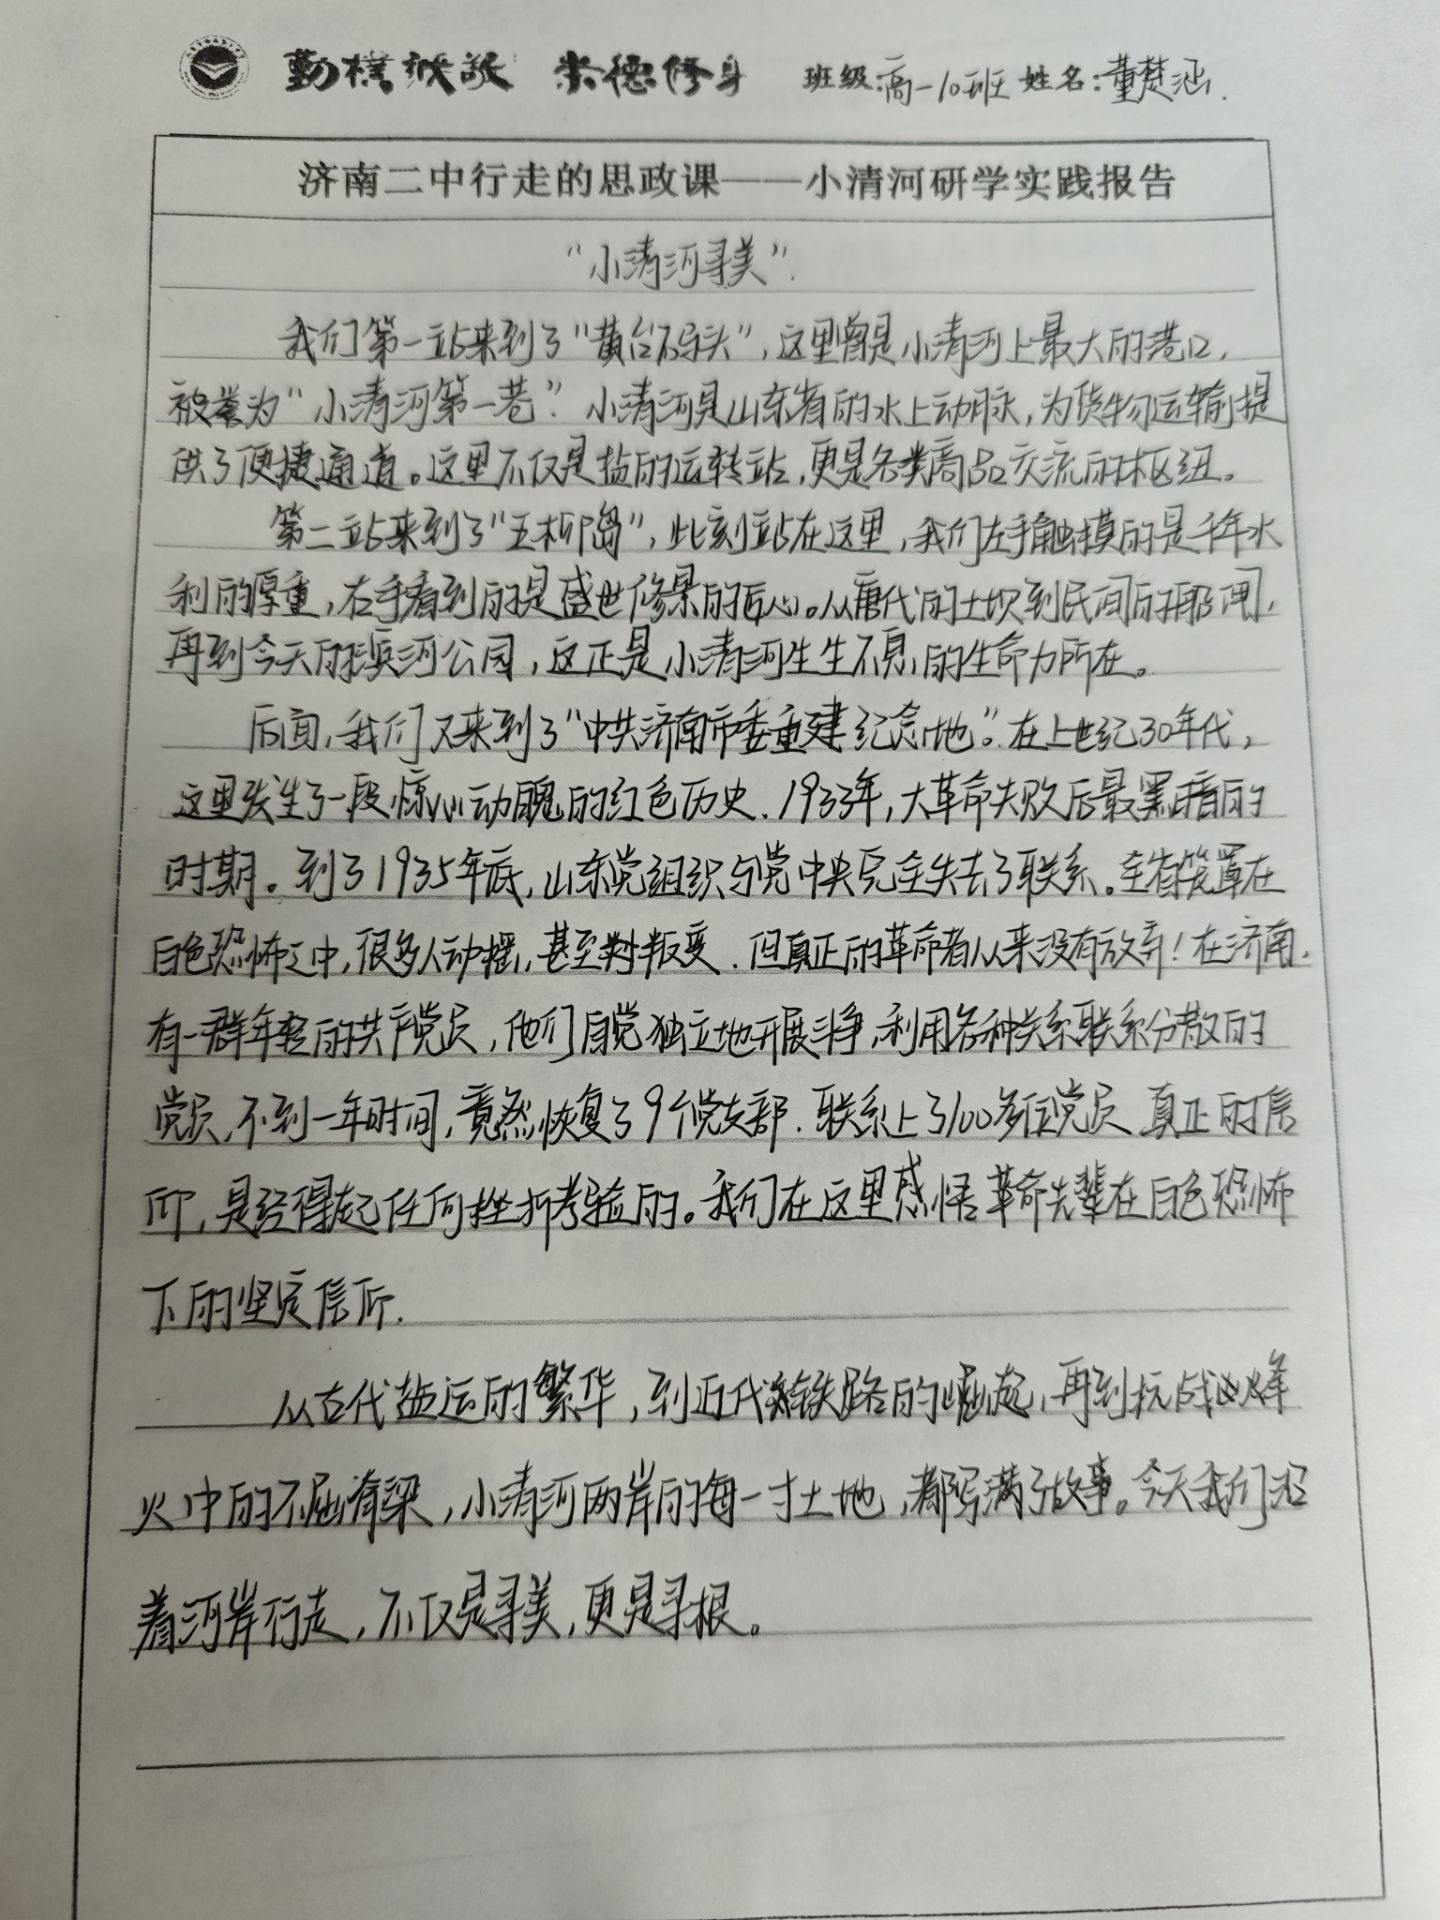 勤樸诚敬 崇德修身 班级:高一10班 姓名:董楚涵.
济南二中行走的思政课——小清河研学实践报告
“小清河寻美”.
我们第一站来到了“黄台码头”,这里曾是小清河上最大的港口,
被誉为“小清河第一巷”.小清河是山东省的水上动脉,为货物运输提
供了便捷通道。这里不仅是盐的运转站,更是各类商品交流的枢纽。
第二站来到了“五柳岛”,此刻站在这里,我们左手触摸的是千年水
利的厚重,右手看到的是盛世修景的匠心。从唐代的土坝到民间的闸,
再到今天的滨河公园,这正是小清河生生不息的生命力所在。
后面,我们又来到了“中共济南市委重建纪念地”。在上世纪30年代,
这里发生了一段惊心动魄的红色历史.1933年,大革命失败后最黑暗的
时期。到了1935年底,山东党组织与党中央完全失去了联系。全省笼罩在
白色恐怖之中,很多人动摇,甚至叛变.但真正的革命者从来没有放弃!在济南.
有一群年轻的共产党员,他们自觉独立地开展斗争,利用各种关系联系分散的
党员,不到一年时间,竟然恢复了9个党支部.联系上了100多位党员 真正的信
仰,是经得起任何挫折考验的。我们在这里感悟革命先辈在白色恐怖
下的坚定信仰.
从古代盐运的繁华,到近代铁路的崛起,再到抗战烽
火中的不屈脊梁,小清河两岸的每一寸土地,都写满了故事。今天我们沿
着河岸行走,不仅是寻美,更是寻根。